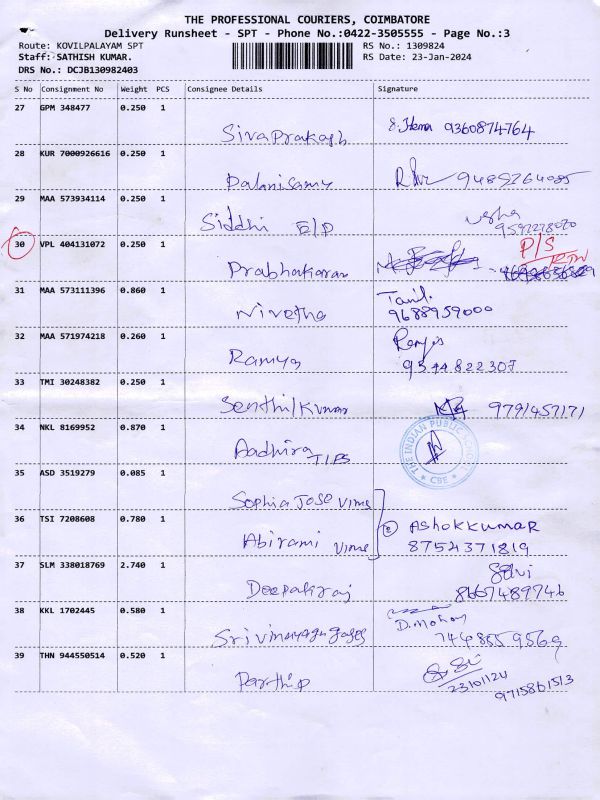 THE PROFESSIONAL COURIERS, COIMBATORE
Delivery Runsheet - SPT - Phone No.:0422-3505555 - Page No.:3
Route: KOVILPALAYAM SPT
RS No.: 1309824
Staff: SATHISH KUMAR.
RS Date: 23-Jan-2024
DRS No.: DCJB130982403
S No Consignment No Weight PCS Consignee Details Signature
27 GPM 348477 0.250 1
Sivaprakash S. Hema 9360874764
28 KUR 7000926616 0.250 1
Palanisamy
29 MAA 573934114 0.250 1
Siddhi E/P usha
30 VPL 404131072 0.250 1
P/S
RTN
Prabhakaran
31 MAA 573111396 0.860 1
Nivetha Tamil.
9688959000
32 MAA 571974218 0.260 1
Ramya
9344822307
33 TMI 30248382 0.250 1
Senthilkumar 9791457171
34 NKL 8169952 0.870 1
THE INDIAN PUBLIC SCHOOL
CBE
Aadhira TIPS
35 ASD 3519279 0.085 1
Sophia Jose Vims
36 TSI 7208608 0.780 1
ASHOKKUMAR
Abirami Vims 8754371819
37 SLM 338018769 2.740 1
Selvi
Deepakraj 8667489746
38 KKL 1702445 0.580 1
D. Mohan
7448559569
39 THN 944550514 0.520 1
Parthip
23/01/24
9715861513